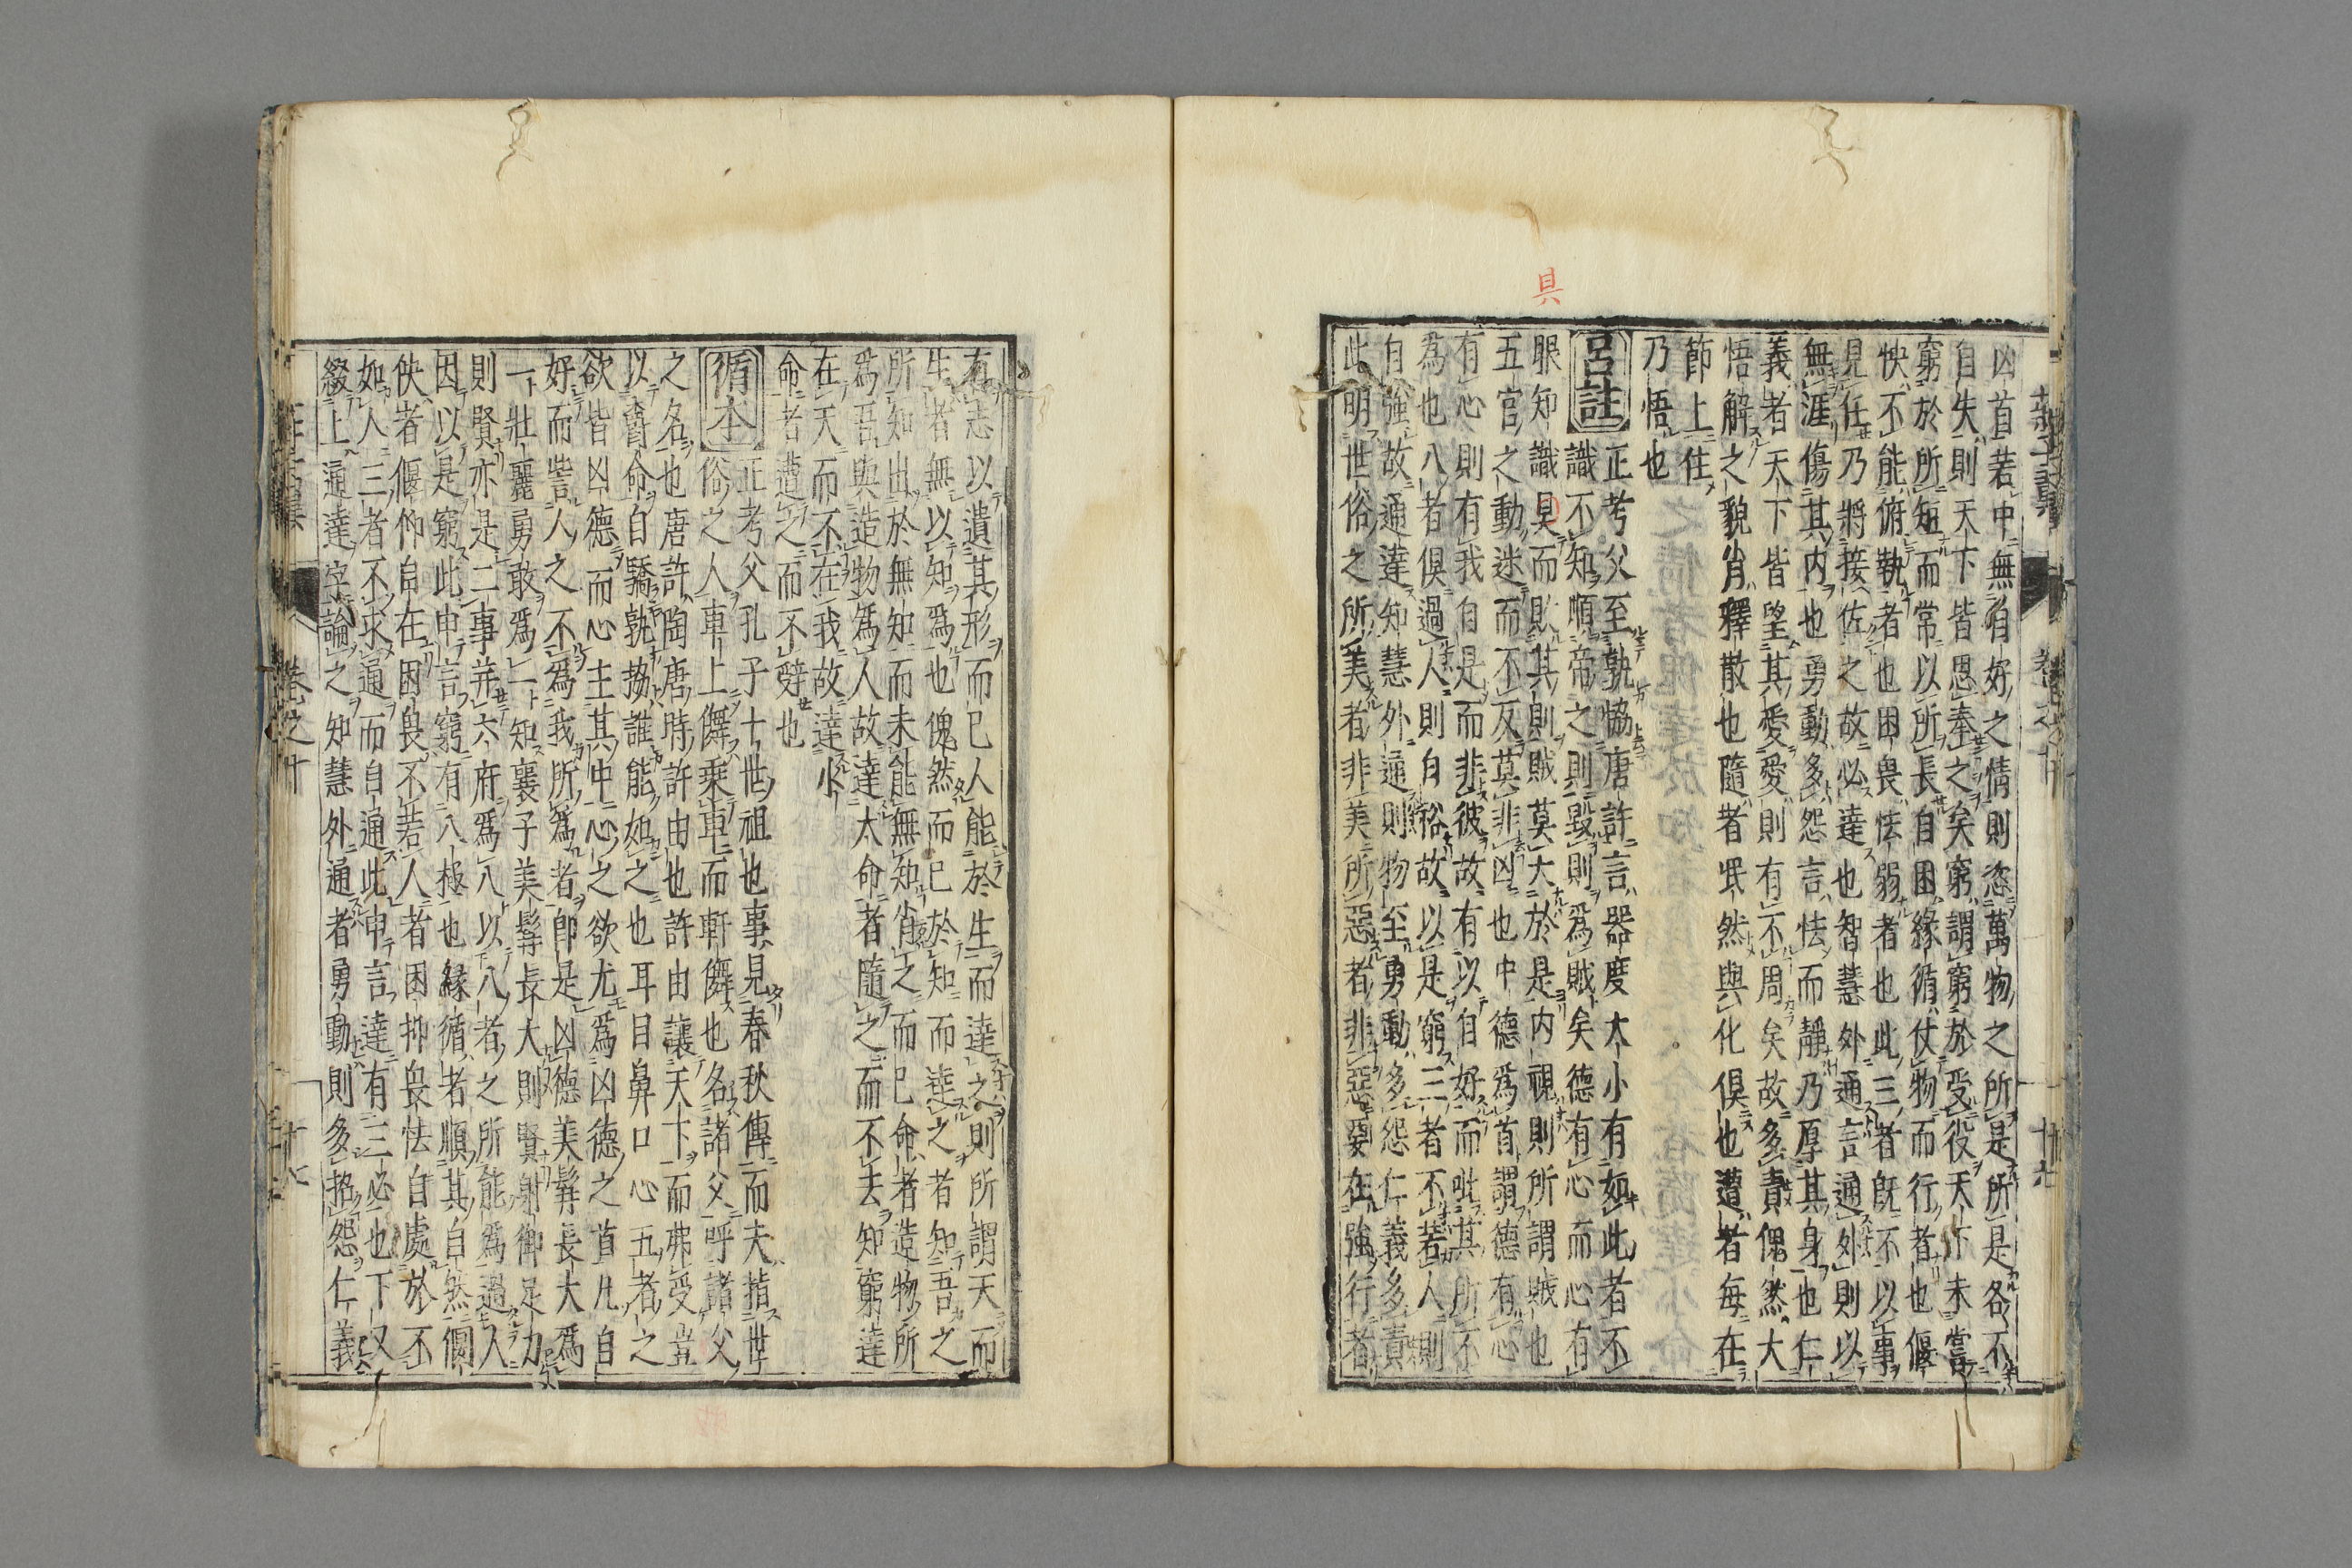 凶首若中無自好之情則恣萬物之所是所是各不
自失則天下皆思奉之矣窮謂窮於受役天下未嘗
窮於所短而常以所長自困緣循仗物而行者也偃
怏不能俯執者也困畏怯弱者也此三者既不以事
見任乃將接佐之故必達也智慧外通言通外則以
無涯傷其内也勇動多怨言怯而靜乃厚其身也仁
義者天下皆望其愛愛則有不周矣故多責傀然大
悟解之貌肖釋散也隨者泯然與化俱也遭者每在
節上住
乃悟也
呂註
正考父至孰協唐許言器度大小有如此者不
識不知順帝之則毀則爲賊矣德有心而心有
眼知識具而敗其則賊莫大於是内視則所謂賊也
五官之動迷而不反莫非凶也中德爲首謂德有心
有心則有我自是而非彼故有以自好而吡其所不
為也八者俱過人則自裕故以是窮三者不若人則
自強故通達知慧外通則物至勇動多怨仁義多責
此明世俗之所美者非美所惡者非惡要在強行者
具
有志以遺其形而已人能於生而達之則所謂天而
生者無以知爲也傀然而已於知而達之者知吾之
所知出於無知而未能無知肖之而已命者造物所
爲吾與造物爲人故達大命者隨之而不去知窮達
在天而不在我故達小
命者遭之而不辭也
循本
正考父孔子十世祖也事見春秋傳而夫指世
俗之人車上儛乘車而軒儛也名諸父呼諸父
之名也唐許陶唐時許由也許由讓天下而弗受豈
以爵命自驕孰協誰能如之也耳目鼻口心五者之
欲皆凶德而心主其中心之欲尤爲凶德之首凡自
好而訾人之不爲我所爲者卽是凶德美髯長大爲
一壯麗勇敢爲一知襄子美髯長大則賢射御足力
則賢亦是二事并六府爲八以八者之所能爲過人
因以是窮此申言窮有八極也緣循者順其自然偃
佒者偃仰自在困畏不若人者困抑畏怯自處於不
如人三者不求通而自通此申言達有三必也下又
綴上通達字論之知慧外通者勇動則多招怨仁義
卷之十